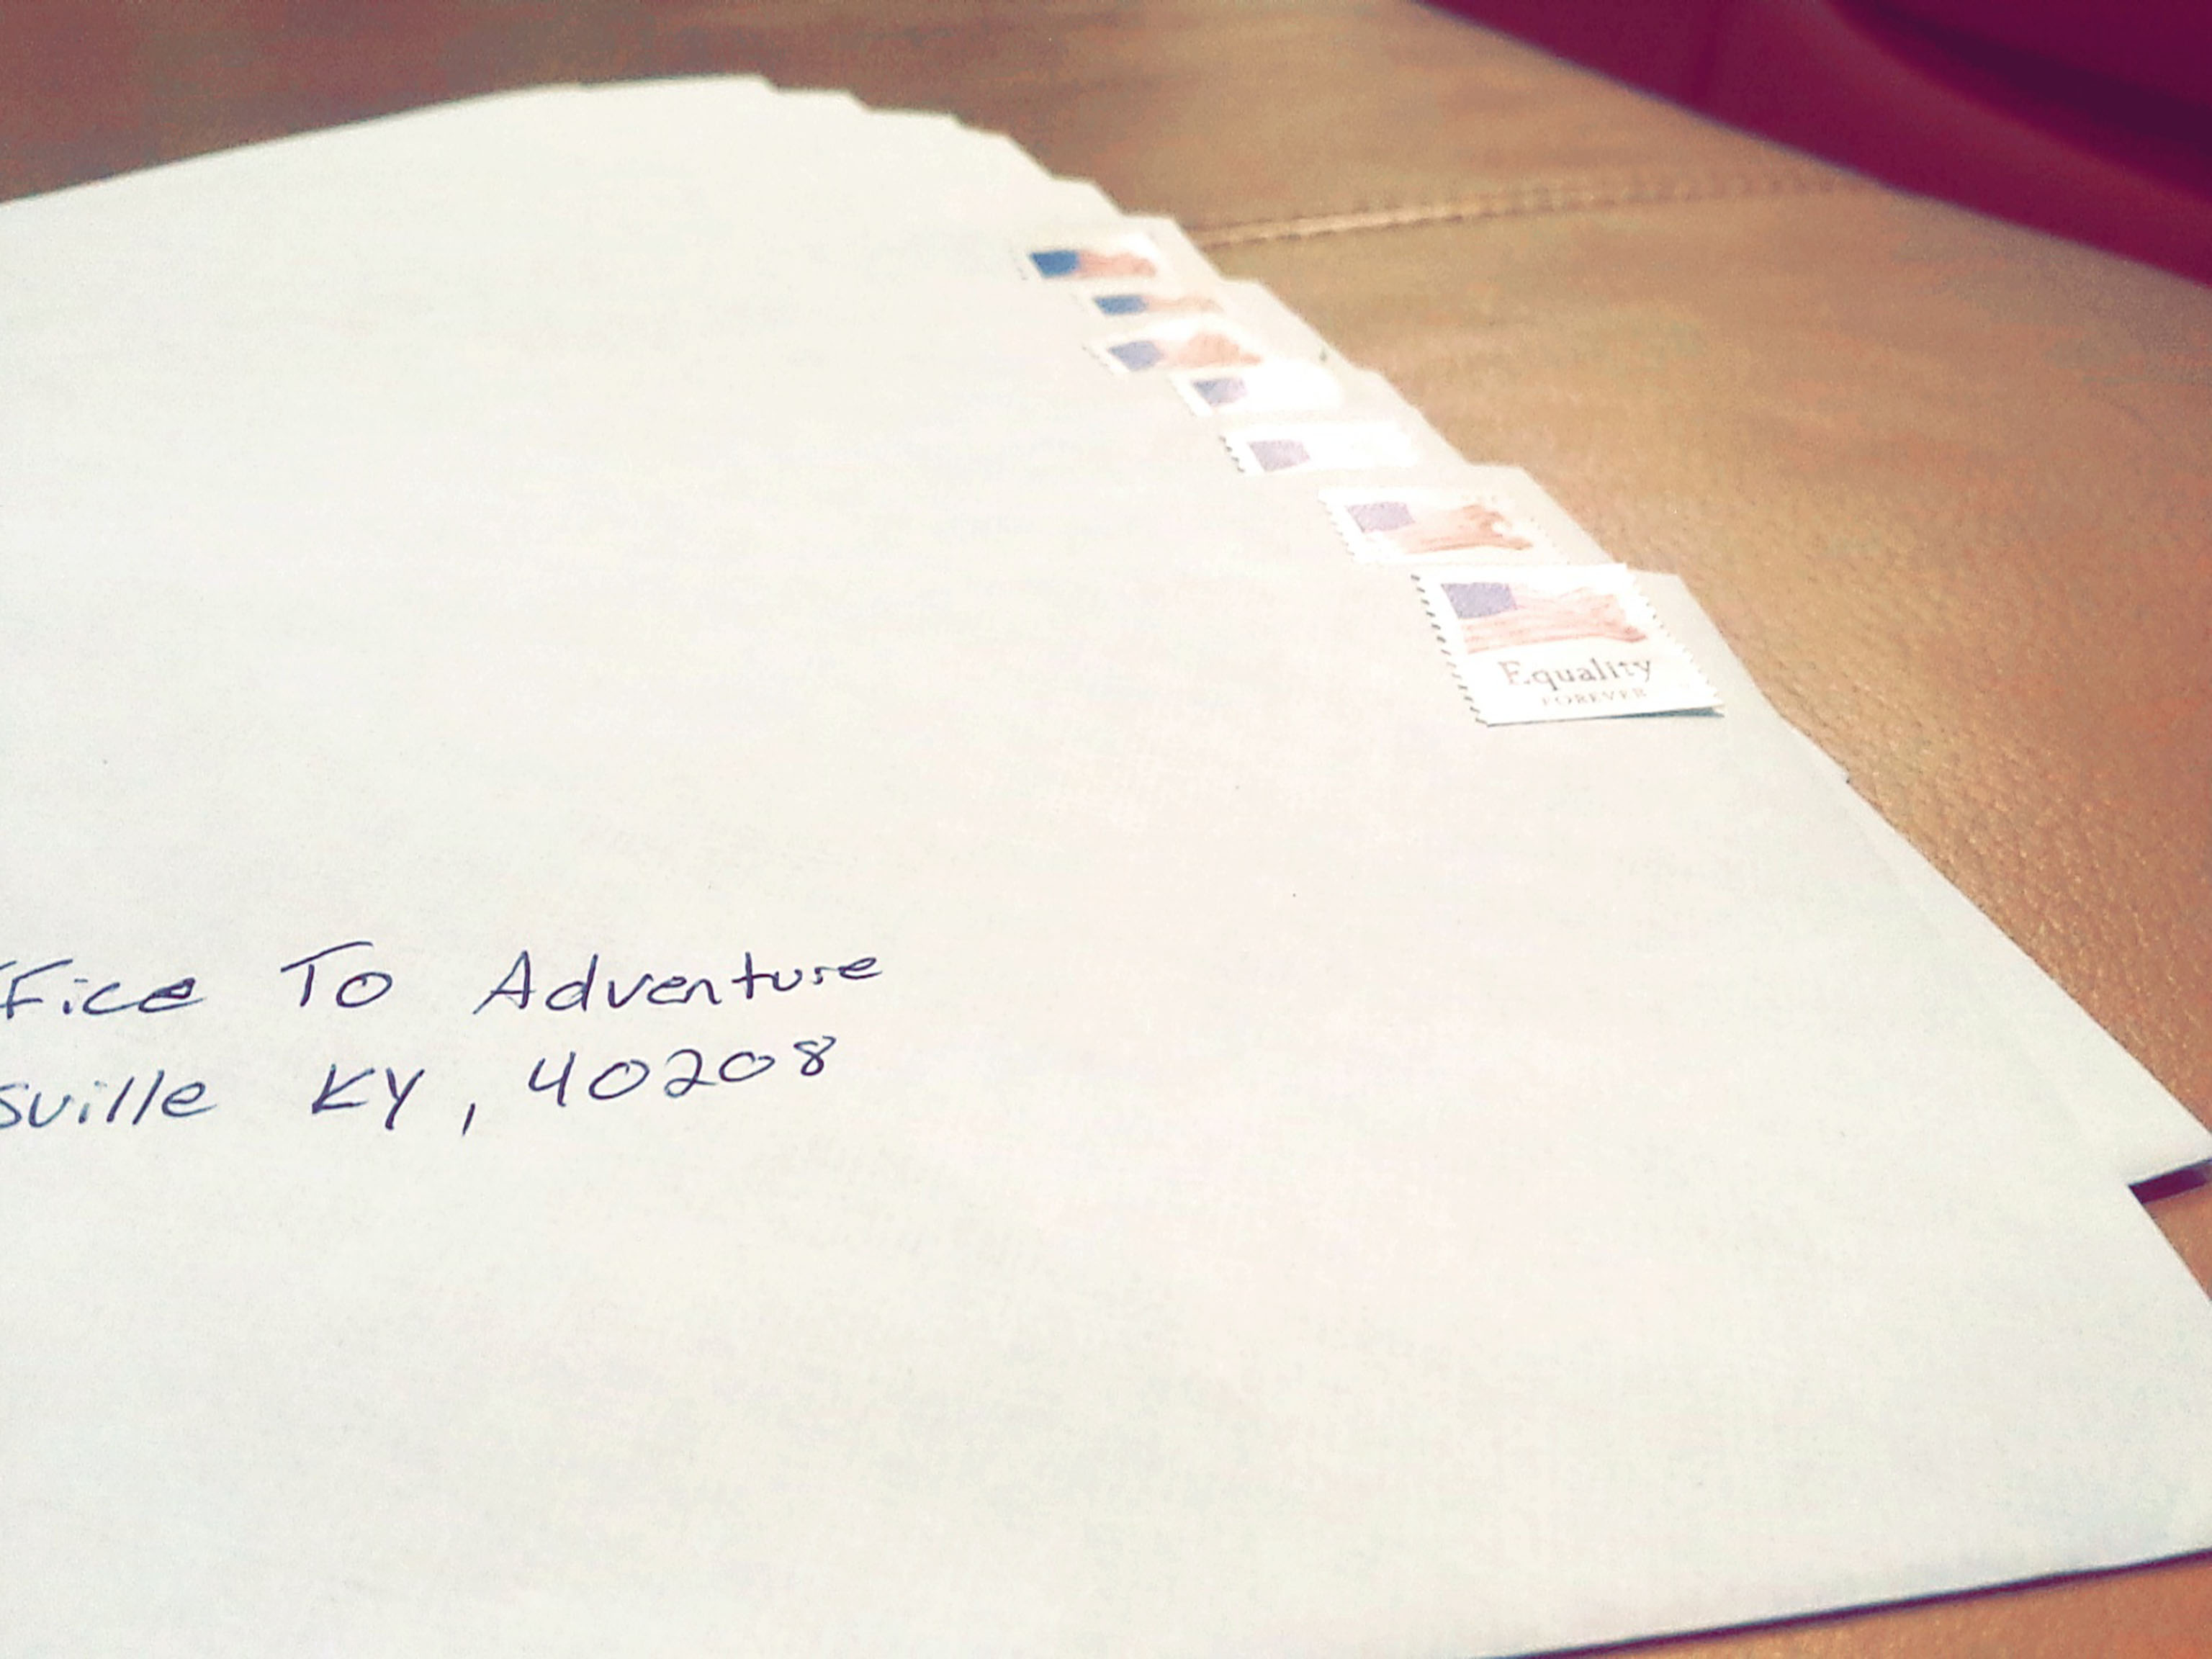 Equality
FOREVER
ffice To Adventure
sville KY, 40208